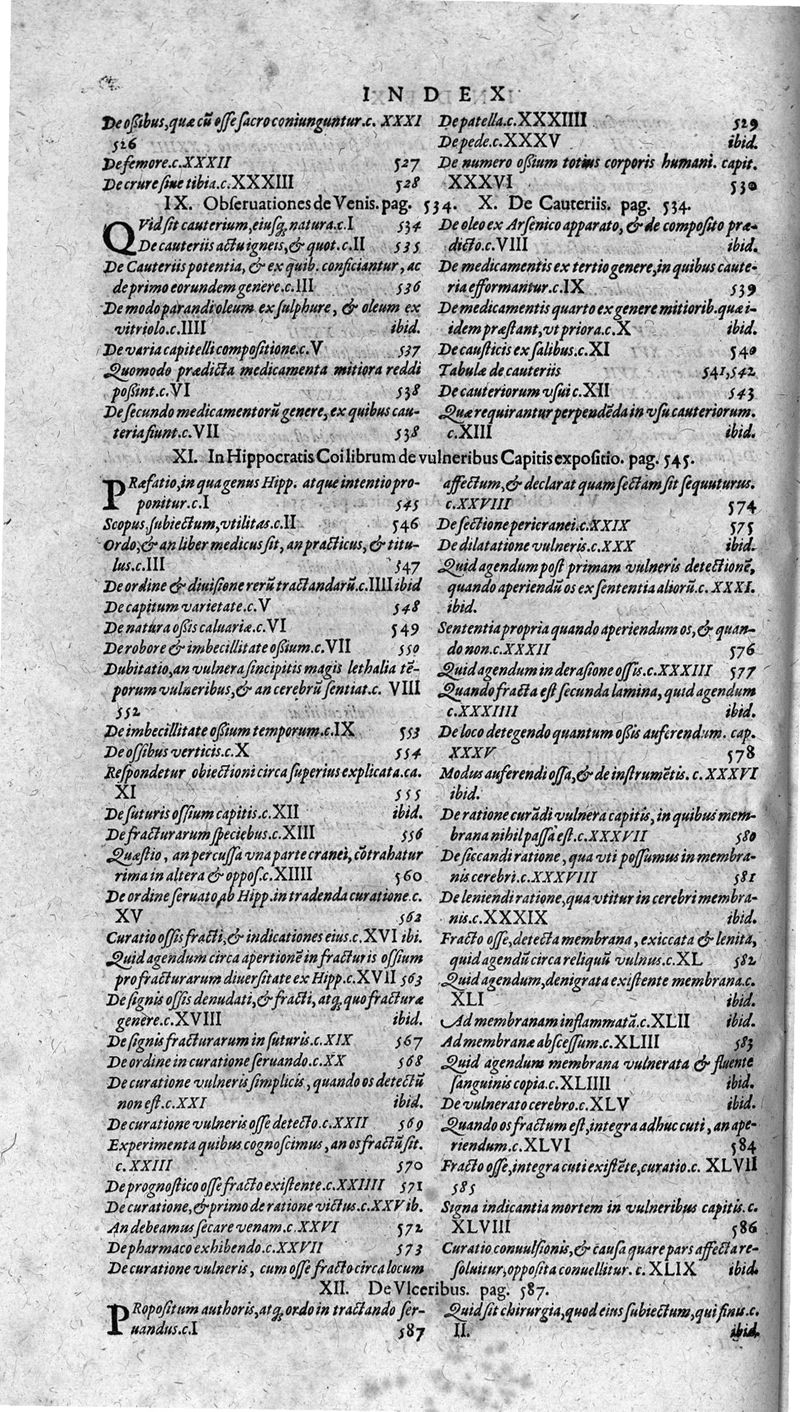 INDEX
De oßibus, quæ cū osse sacro coniunguntur. c. XXXI
526
De femore. c. XXXII 527
De crure siue tibia. c. XXXIII 528
De patella. c. XXXIIII 529
De pede. c. XXXV ibid.
De numero oßium totius corporis humani. capit.
XXXVI 530
IX. Obseruationes de Venis. pag. 534. X. De Cauteriis. pag. 534.
QVid sit cauterium, eiusq; natura. c. I 534
De cauteriis actu igneis, & quot. c. II 535
De Cauteriis potentia, & ex quib. conficiantur, ac
de primo eorundem genere. c. III 536
De modo parandi oleum ex sulphure, & oleum ex
vitriolo. c. IIII ibid.
De varia capitelli compositione. c. V 537
Quomodo prædicta medicamenta mitiora reddi
poßint. c. VI 538
De secundo medicamentorū genere, ex quibus cau-
teria fiunt. c. VII 538
De oleo ex Arsenico apparato, & de composito præ-
dicto. c. VIII ibid.
De medicamentis ex tertio genere, in quibus caute-
ria efformantur. c. IX 539
De medicamentis quarto ex genere mitiorib. quæ i-
idem præstant, vt priora. c. X ibid.
De causticis ex salibus. c. XI 540
Tabulæ de cauteriis 541, 542
De cauteriorum vsu. c. XII 543
Quæ requirantur perpendēda in vsu cauteriorum.
c. XIII ibid.
XI. In Hippocratis Coi librum de vulneribus Capitis expositio. pag. 545.
PRæfatio, in qua genus Hipp. atque intentio pro-
ponitur. c. I 545
Scopus, subiectum, vtilitas. c. II 546
Ordo, & an liber medicus sit, an practicus, & titu-
lus. c. III 547
De ordine & diuisione rerū tractandarū. c. IIII ibid
De capitum varietate. c. V 548
De natura oßis caluariæ. c. VI 549
De robore & imbecillitate oßium. c. VII 550
Dubitatio, an vulnera sincipitis magis lethalia tē-
porum vulneribus, & an cerebrū sentiat. c. VIII
552
De imbecillitate oßium temporum. c. IX 553
De ossibus verticis. c. X 554
Respondetur obiectioni circa superius explicata. ca.
XI 555
De suturis ossium capitis. c. XII ibid.
De fracturarum speciebus. c. XIII 556
Quæstio, an percussa vna parte cranei, cōtrahatur
rima in altera & oppos. c. XIIII 560
De ordine seruato ab Hipp. in tradenda curatione. c.
XV 562
Curatio ossis fracti, & indicationes eius. c. XVI ibi.
Quid agendum circa apertionē in fracturis ossium
pro fracturarum diuersitate ex Hipp. c. XVII 563
De signis ossis denudati, & fracti, atq; quo fracturæ
genere. c. XVIII ibid.
De signis fracturarum in suturis. c. XIX 567
De ordine in curatione seruando. c. XX 568
De curatione vulneris simplicis, quando os detectū
non est. c. XXI ibid.
De curatione vulneris osse detecto. c. XXII 569
Experimenta quibus cognoscimus, an os fractū sit.
c. XXIII 570
De prognostico osse fracto existente. c. XXIIII 571
De curatione, & primo de ratione victus. c. XXV ib.
An debeamus secare venam. c. XXVI 572
De pharmaco exhibendo. c. XXVII 573
De curatione vulneris, cum osse fracto circa locum
affectum, & declarat quam sectam sit sequuturus.
c. XXVIII 574
De sectione pericranei. c. XXIX 575
De dilatatione vulneris. c. XXX ibid.
Quid agendum post primam vulneris detectionē,
quando aperiendū os ex sententia aliorū. c. XXXI.
ibid.
Sententia propria quando aperiendum os, & quan-
do non. c. XXXII 576
Quid agendum in derasione ossis. c. XXXIII 577
Quando fracta est secunda lamina, quid agendum
c. XXXIIII ibid.
De loco detegendo quantum oßis auferendum. cap.
XXXV 578
Modus auferendi ossa, & de instrumētis. c. XXXVI
ibid.
De ratione curādi vulnera capitis, in quibus mem-
brana nihil passa est. c. XXXVII 580
De siccandi ratione, qua vti possumus in membra-
nis cerebri. c. XXXVIII 581
De leniendi ratione, qua vtitur in cerebri membra-
nis. c. XXXIX ibid.
Fracto osse, detecta membrana, exiccata & lenita,
quid agendū circa reliquū vulnus. c. XL 582
Quid agendum, denigrata existente membrana. c.
XLI ibid.
Ad membranam inflammatā. c. XLII ibid.
Ad membranæ abscessum. c. XLIII 583
Quid agendum membrana vulnerata & fluente
sanguinis copia. c. XLIIII ibid.
De vulnerato cerebro. c. XLV ibid.
Quando os fractum est, integra adhuc cuti, an ape-
riendum. c. XLVI 584
Fracto osse, integra cuti existēte, curatio. c. XLVII
585
Signa indicantia mortem in vulneribus capitis. c.
XLVIII 586
Curatio conuulsionis, & causa quare pars affecta re-
soluitur, opposita conuellitur. c. XLIX ibid.
XII. De Vlceribus. pag. 587.
PRopositum authoris, atq; ordo in tractando ser-
uandus. c. I 587
Quid sit chirurgia, quod eius subiectum, qui finis. c.
II. ibid.